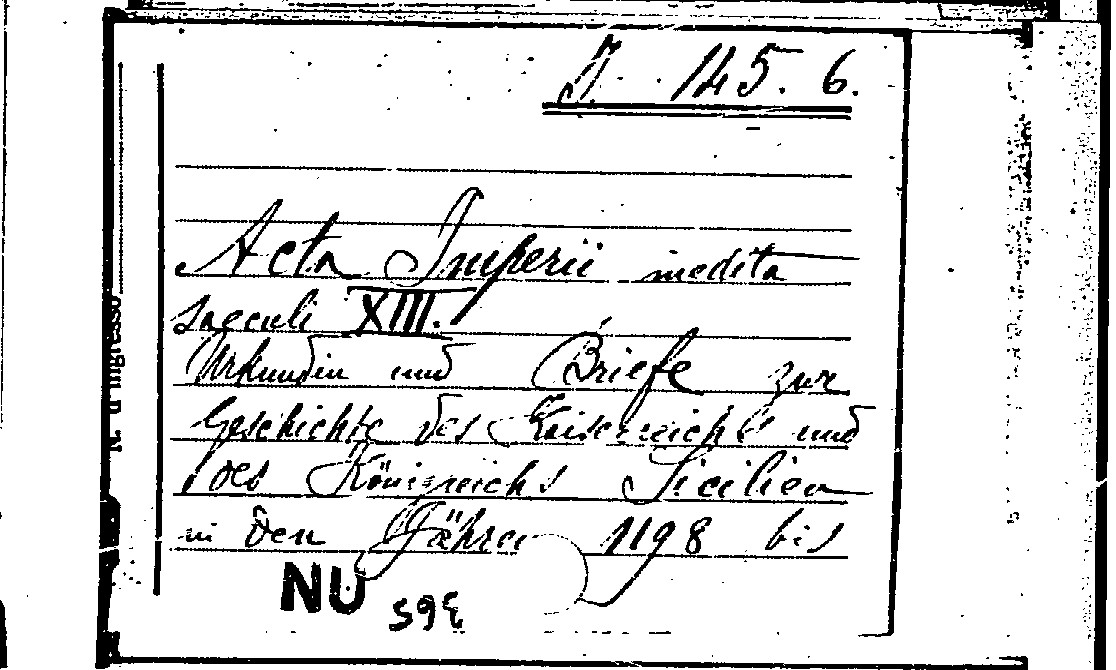 J. 145. 6.
Acta Imperii inedita
saeculi XIII.
Urkunden und Briefe zur
Geschichte des Kaiserreichs und
des Königreichs Sicilien
in den Jähren 1198 bis
NU
365
N. d'ingresso